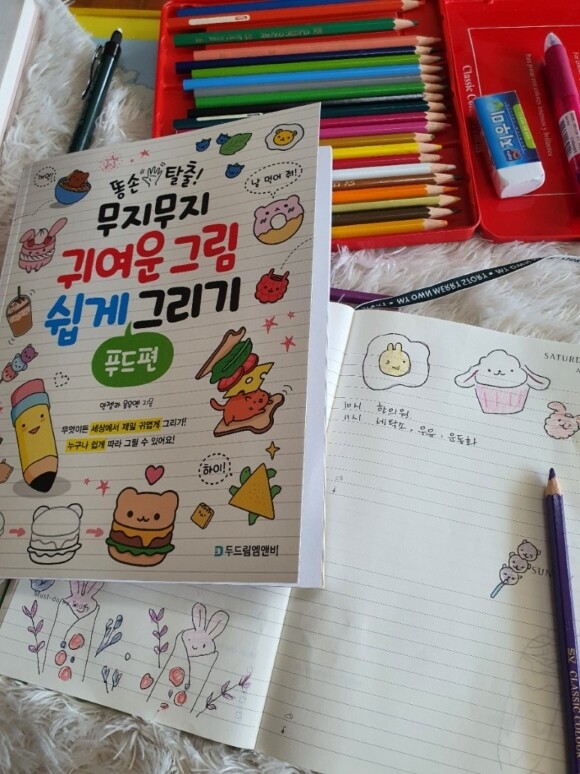 똥손 탈출!
무지무지
귀여운 그림
쉽게 그리기
푸드편
날 먹어 줘!
무엇이든 세상에서 제일 귀엽게 그리기!
누구나 쉽게 따라 그릴 수 있어요!
하이!
두드림엠앤비
미하지
MY OWN MERRY STORY
SATURD
한의원
세탁소, 우유, 운동화
SUN
SV CLASSIC COLO